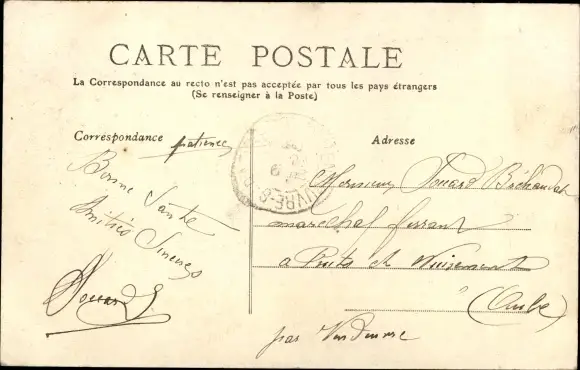 CARTE POSTALE
La Correspondance au recto n'est pas acceptée par tous les pays étrangers
(Se renseigner à la Poste)
Correspondance
patience
Bonne Santé
Amitiés Sincères
Douard
Adresse
Monsieur Douard
maréchal ferrant
a Puits et Nuisement
(Aube)
par Vendeuvre